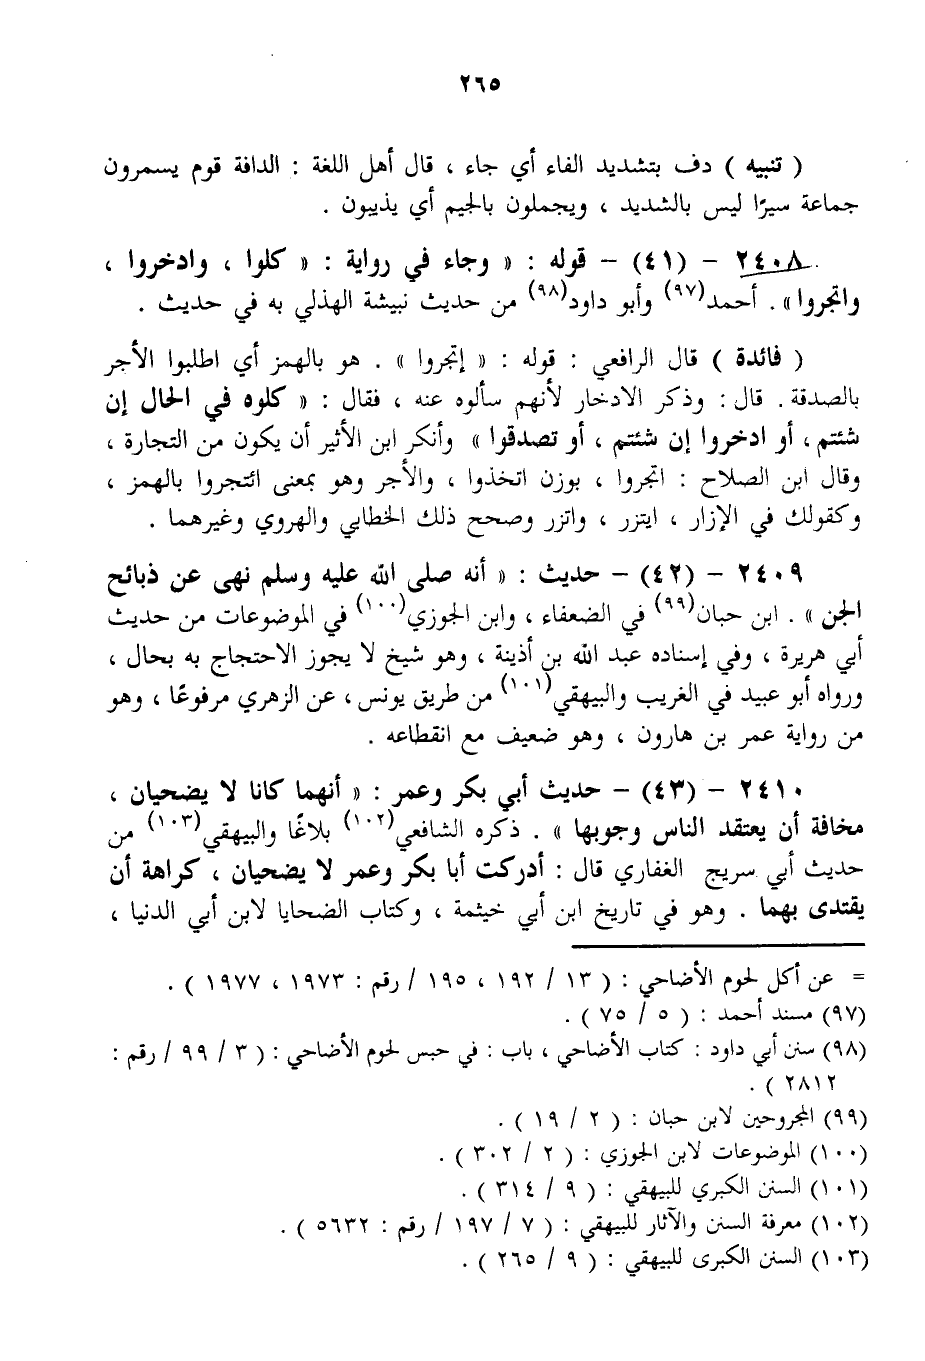 ٢٦٥
( تنبيه ) دف بتشديد الفاء أي جاء ، قال أهل اللغة : الدافة قوم يسمرون
جماعة سيرًا ليس بالشديد ، ويجملون بالجيم أي يذيبون .
٢٤٠٨ – (٤١) – قوله : « وجاء في رواية : « كلوا ، وادخروا ،
واتجروا» . أحمد(٩٧) وأبو داود(٩٨) من حديث نبيشة الهذلي به في حديث .
( فائدة ) قال الرافعي : قوله : « إتجروا » . هو بالهمز أي اطلبوا الأجر
بالصدقة . قال : وذكر الادخار لأنهم سألوه عنه ، فقال : « كلوه في الحال إن
شئتم ، أو ادخروا إن شئتم ، أو تصدقوا » وأنكر ابن الأثير أن يكون من التجارة ،
وقال ابن الصلاح : اتجروا ، بوزن اتخذوا ، والأجر وهو بمعنى ائتجروا بالهمز ،
وكقولك في الإزار ، ايتزر ، واتزر وصحح ذلك الخطابي والهروي وغيرهما .
٢٤٠٩ – (٤٢) – حديث : « أنه صلى الله عليه وسلم نهى عن ذبائح
الجن » . ابن حبان(٩٩) في الضعفاء ، وابن الجوزي(١٠٠) في الموضوعات من حديث
أبي هريرة ، وفي إسناده عبد الله بن أذينة ، وهو شيخ لا يجوز الاحتجاج به بحال ،
ورواه أبو عبيد في الغريب والبيهقي(١٠١) من طريق يونس ، عن الزهري مرفوعًا ، وهو
من رواية عمر بن هارون ، وهو ضعيف مع انقطاعه .
٢٤١٠ – (٤٣) – حديث أبي بكر وعمر : « أنهما كانا لا يضحيان ،
مخافة أن يعتقد الناس وجوبها » . ذكره الشافعي(١٠٢) بلاغًا والبيهقي(١٠٣) من
حديث أبي سريج الغفاري قال : أدركت أبا بكر وعمر لا يضحيان ، كراهة أن
يقتدى بهما . وهو في تاريخ ابن أبي خيثمة ، وكتاب الضحايا لابن أبي الدنيا ،
= عن أكل لحوم الأضاحي : ( ١٣ / ١٩٢ ، ١٩٥ / رقم : ١٩٧٣ ، ١٩٧٧ ) .
(٩٧) مسند أحمد : ( ٥ / ٧٥ ) .
(٩٨) سنن أبي داود : كتاب الأضاحي ، باب : في حبس لحوم الأضاحي : ( ٣ / ٩٩ / رقم :
٢٨١٢ ) .
(٩٩) المجروحين لابن حبان : ( ٢ / ١٩ ) .
(١٠٠) الموضوعات لابن الجوزي : ( ٢ / ٣٠٢ ) .
(١٠١) السنن الكبري للبيهقي : ( ٩ / ٣١٤ ) .
(١٠٢) معرفة السنن والآثار للبيهقي : ( ٧ / ١٩٧ / رقم : ٥٦٣٢ ) .
(١٠٣) السنن الكبرى للبيهقي : ( ٩ / ٢٦٥ ) .